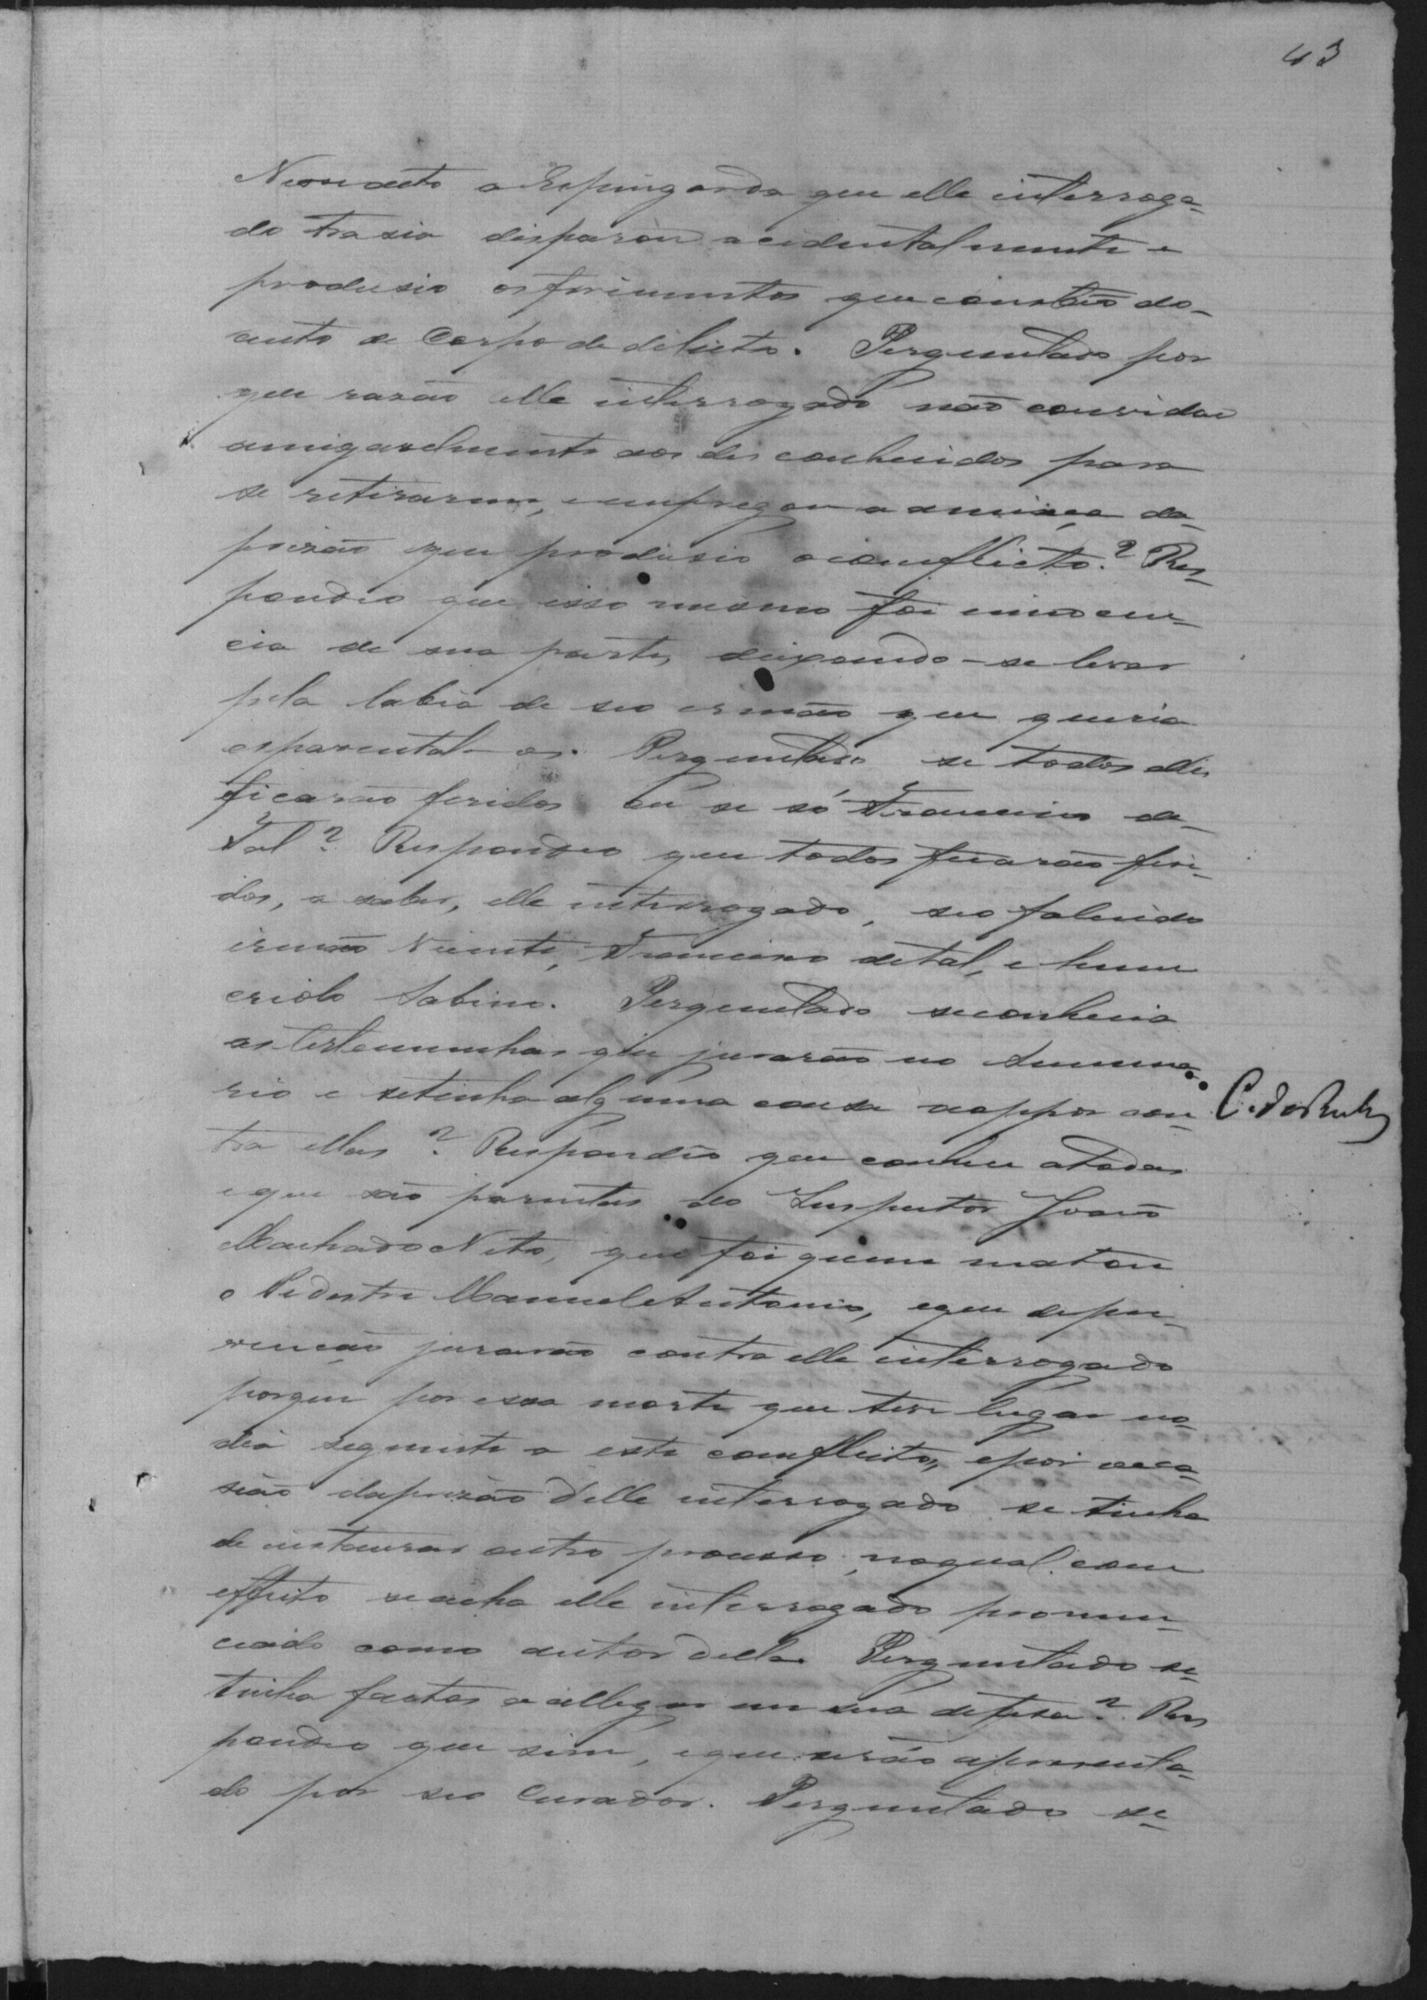 43
Nesse acto a Espingarda que elle interroga-
do trasia disparou acidentalmente e
produsio os ferimentos que constão do
auto de Corpo de delicto. Perguntado por
que rasão elle interrogado não convidou
amigavelmente aos desconhecidos para
se retirarem, e empregou a ameaça da
prizão que produsio o conflicto? Res-
pondeo que isso mesmo foi innocen-
cia de sua parte, deixando-se levar
pela labia de seo irmão que queria
espavental-os. Perguntado se todos elles
ficarão feridos ou se só Francisco de
Tal? Respondeo que todos ficarão feri-
dos, a saber, elle interrogado, seo falecido
irmão Vicente, Francisco de tal, e hum
criolo Sabino. Perguntado se conhecia
as testemunhas que jurarão no summa-
rio e se tinha alguma cousa a oppor con-
tra ellas? Respondeo que conhece a todas
e que são parentes do Inspector João
Machado Neto, que foi quem matou
o Pedestre Manoel Antonio, e que de pre-
venção jurarão contra elle interrogado
porque por essa morte que teve lugar no
dia seguinte a este conflicto, e por occa-
sião da prizão d'elle interrogado se tinha
de instaurar outro processo, no qual com
effeito se acha elle interrogado pronun-
ciado como autor della. Perguntado se
tinha factos a allegar em sua defesa? Res
pondeo que sim, e que serão apresenta-
do por seo Curador. Perguntado se